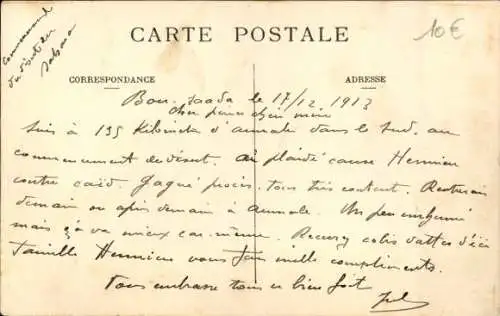 Commencement
du désert du
Sahara
10€
CARTE POSTALE
CORRESPONDANCE
ADRESSE
Bou-Saada le 17/12 1913
Cher père chère mère
Suis à 135 d'Aumale dans le Sud, au
commencement du désert. Ai plaidé cause Hernnien
contre caïd. Gagné procès. tous très content. Retournerai
demain ou après demain à Aumale. Un peu enrhumé
mais ça va mieux car même. Recevez colis dattes d'ici
Famille vous fait mille compliments.
Vous embrasse tous et bien fort